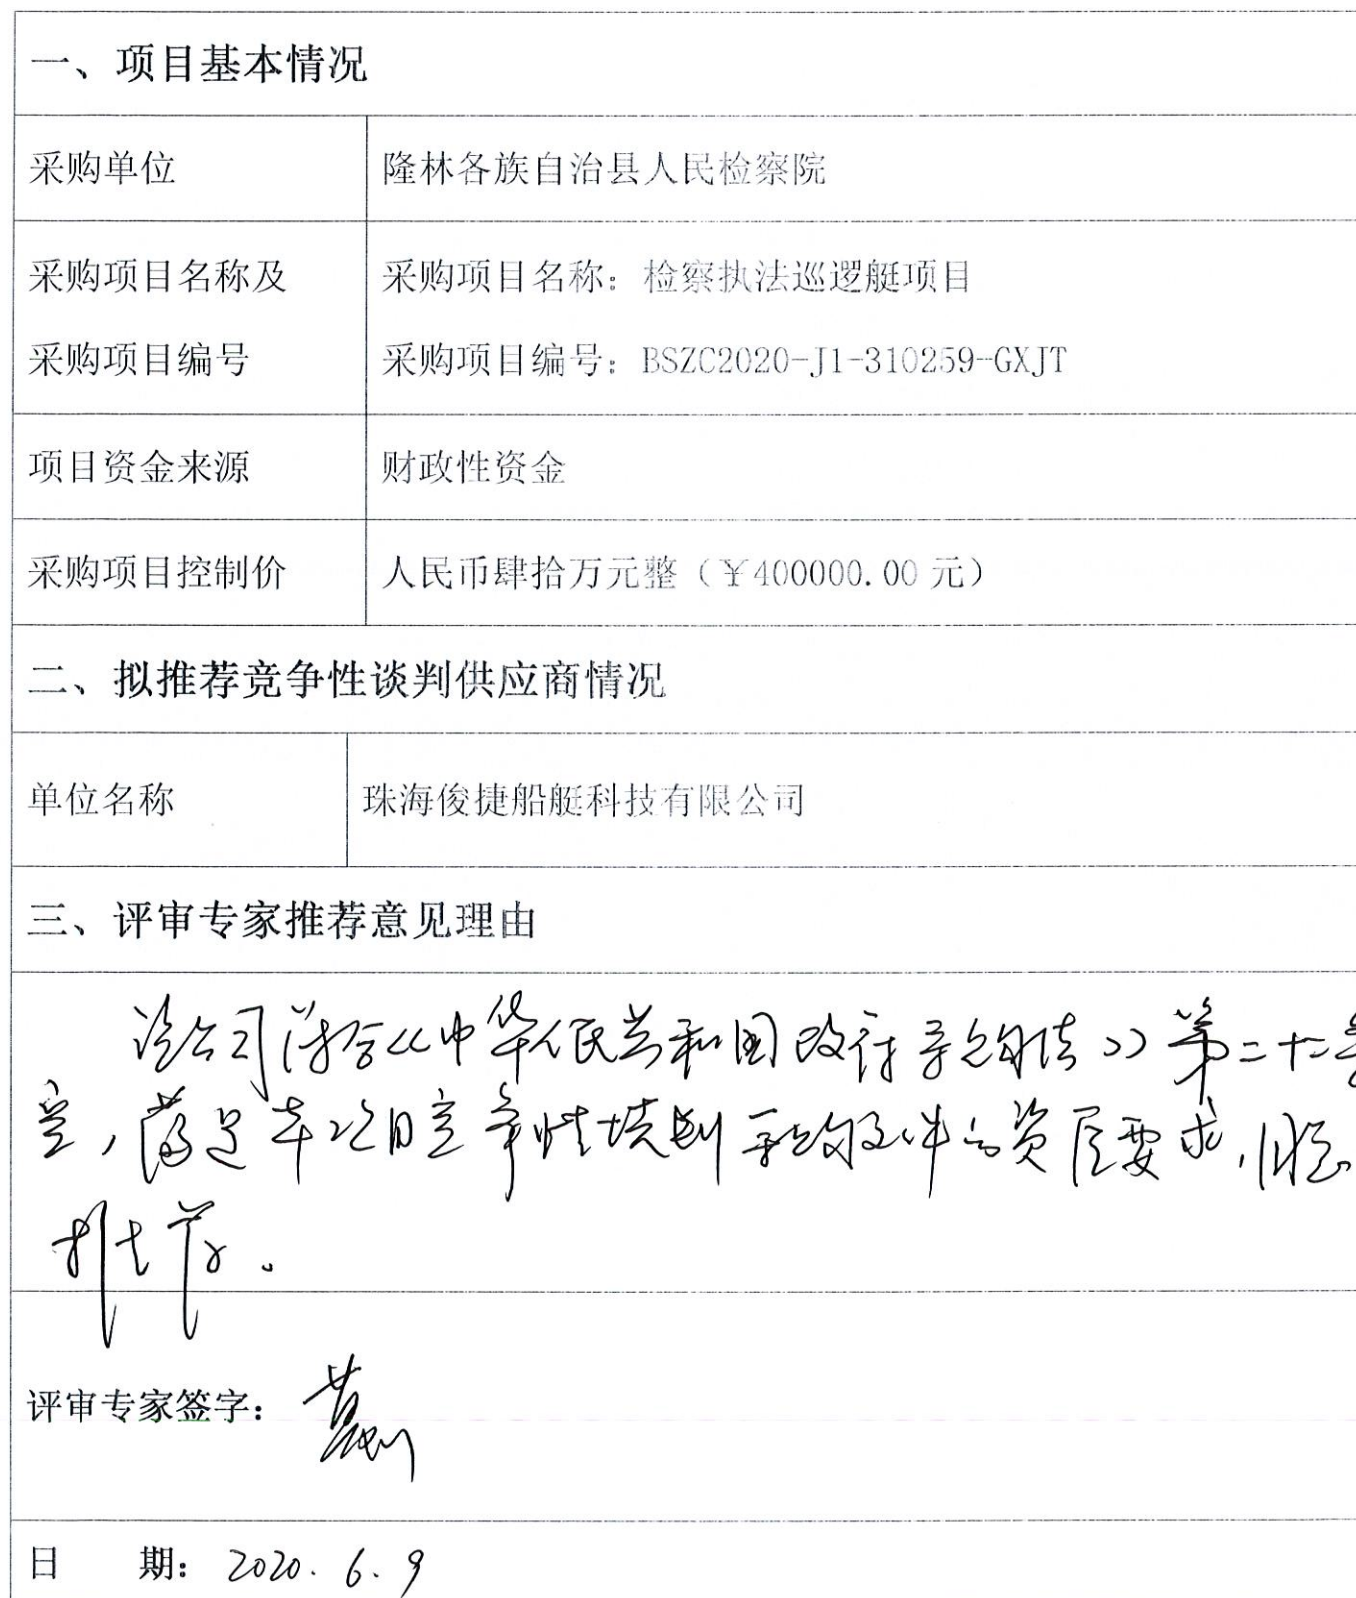 一、项目基本情况
采购单位 隆林各族自治县人民检察院
采购项目名称及 采购项目名称：检察执法巡逻艇项目
采购项目编号 采购项目编号：BSZC2020-J1-310259-GXJT
项目资金来源 财政性资金
采购项目控制价 人民币肆拾万元整（￥400000.00 元）
二、拟推荐竞争性谈判供应商情况
单位名称 珠海俊捷船艇科技有限公司
三、评审专家推荐意见理由
该公司符合《中华人民共和国政府采购法》第二十二条
定，满足本项目竞争性谈判采购文件的资质要求，同意
推荐。
评审专家签字：
日 期：2020.6.9